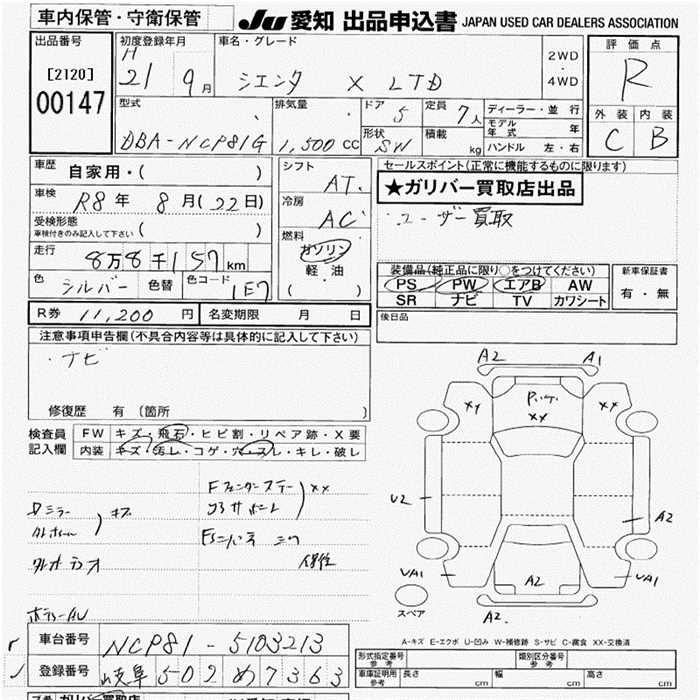 車内保管・守衛保管
JU 愛知 出品申込書 JAPAN USED CAR DEALERS ASSOCIATION
出品番号
[2120]
00147
初度登録年月
H
21 9月
車名・グレード
シエンタ X LTD
2WD
・
4WD
評価点
R
外装 内装
C B
型式
DBA-NCP81G
排気量
1,500 CC
ドア 5
定員 7人
形状 SW
積載 kg
ディーラー・並行
モデル年式 年
ハンドル 左・右
車歴 自家用・( )
車検 R8年 8月(22日)
受検形態
車検付きのみ記入して下さい ( )
走行 8万8千157km
色 シルバー 色替 色コード 1E7
シフト AT.
冷房 AC
燃料
ガソリン
軽油
( ・ )
セールスポイント(正常に機能するものに限ります)
★ガリバー買取店出品
・ユーザー買取
装備品(純正品に限り○をつけてください)
PS PW エアB AW
SR ナビ TV カワシート
新車保証書
有・無
R券 11,200円 名変期限 月 日
後日品
注意事項申告欄(不具合内容等は具体的に記入して下さい)
・ナビ
修復歴 有 〔箇所 〕
検査員記入欄
FW キズ・飛石・ヒビ割・リペア跡・X要
内装 キズ・汚レ・コゲ・穴・スレ・キレ・破レ
A2 A1
XX XX
XX
U2 A2
VA1 A2 VA1
スペア A2
A-キズ E-エクボ U-凹み W-補修跡 S-サビ C-腐食 XX-交換済
車台番号 NCP81-5103213
登録番号 岐阜 502 め 7363
形式指定番号 参考 類別区分番号 参考
車庫証明用 参考 長さ cm 幅 cm 高さ cm